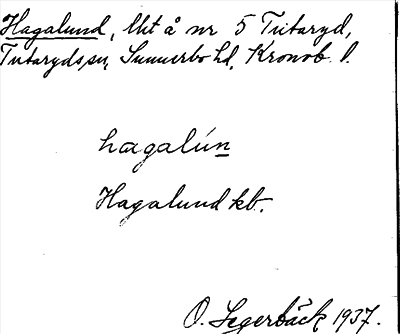 Hagalund, lht å nr 5 Tutaryd,
Tutaryds sn, Sunnerbo hd, Kronob. l.
hagalún
Hagalund kb.
O. Segerbäck 1937.